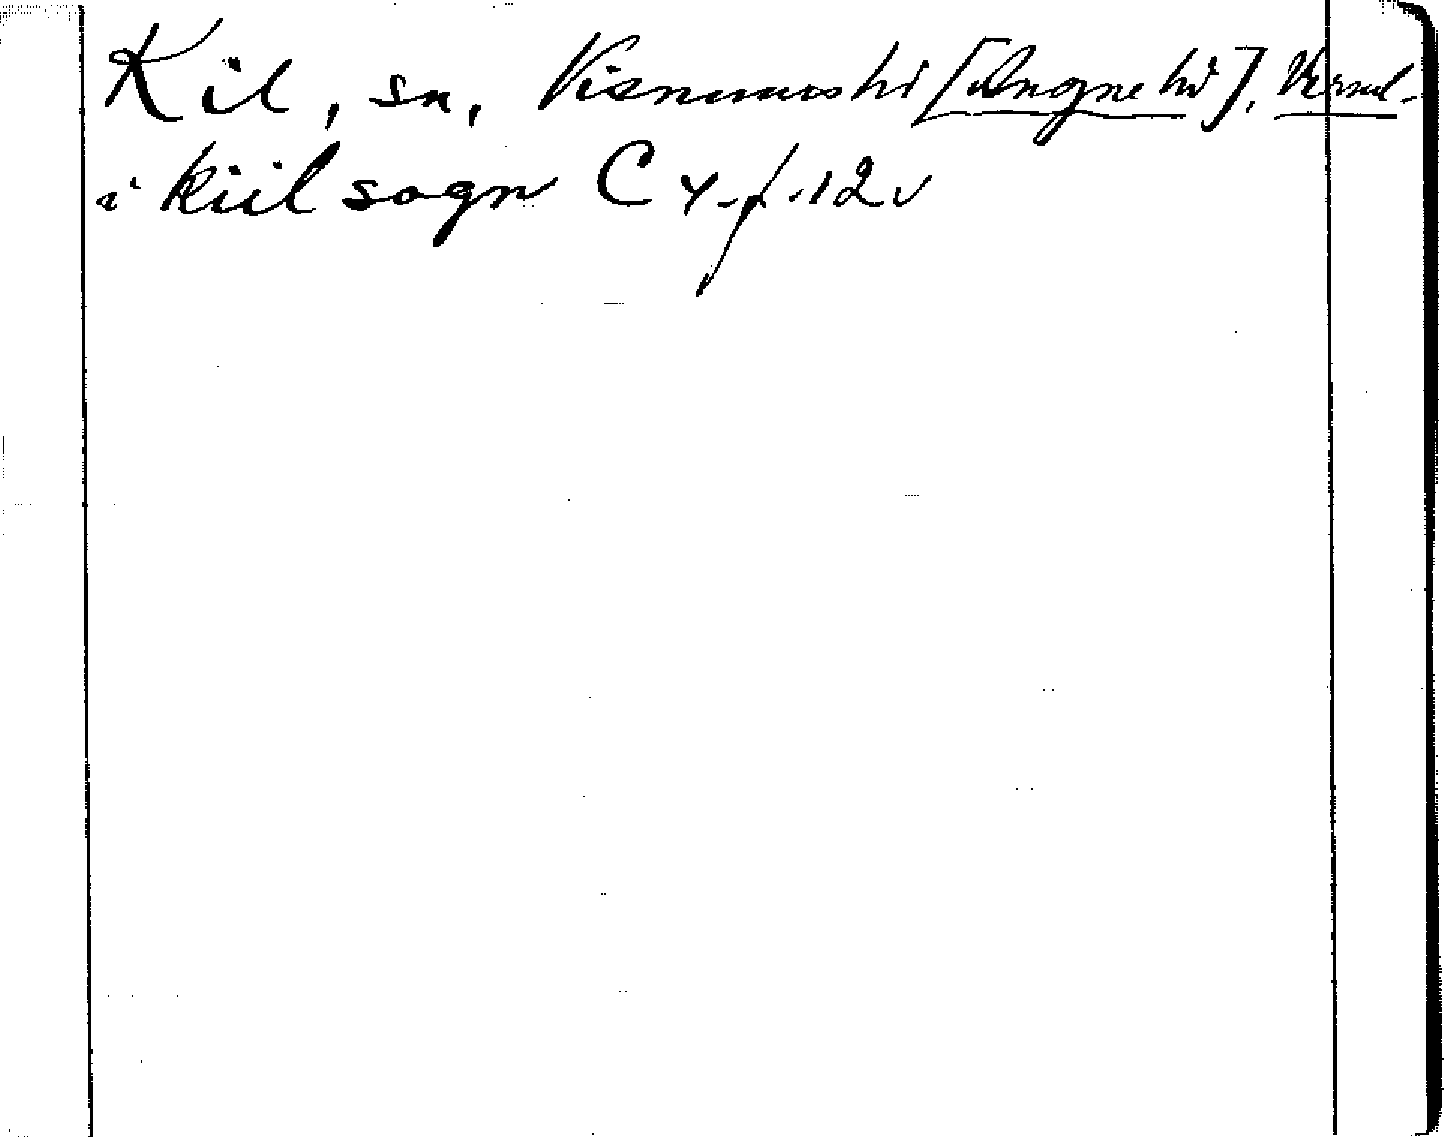 Kil, sn, Visnums hd [Ångne hd], Verml.
i kiil sogn C 4.f.12v